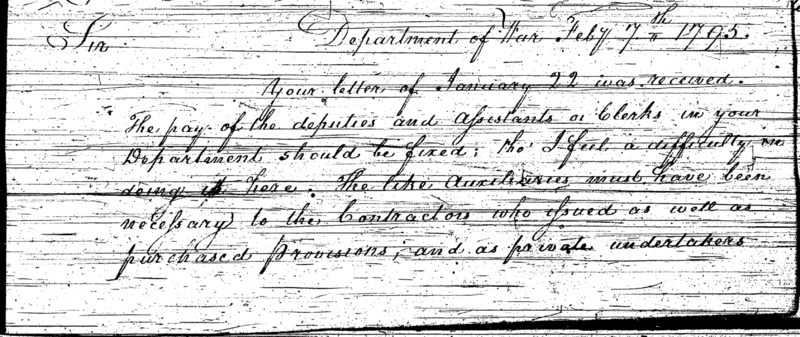 Sir Department of War Feby 7th 1795.
Your letter of January 22 was received.
The pay of the deputies and assistants or Clerks in your
Department should be fixed; tho' I feel a difficulty in
doing it here. The like Auxiliaries must have been
necessary to the Contractors who issued as well as
purchased Provisions; and as private undertakers